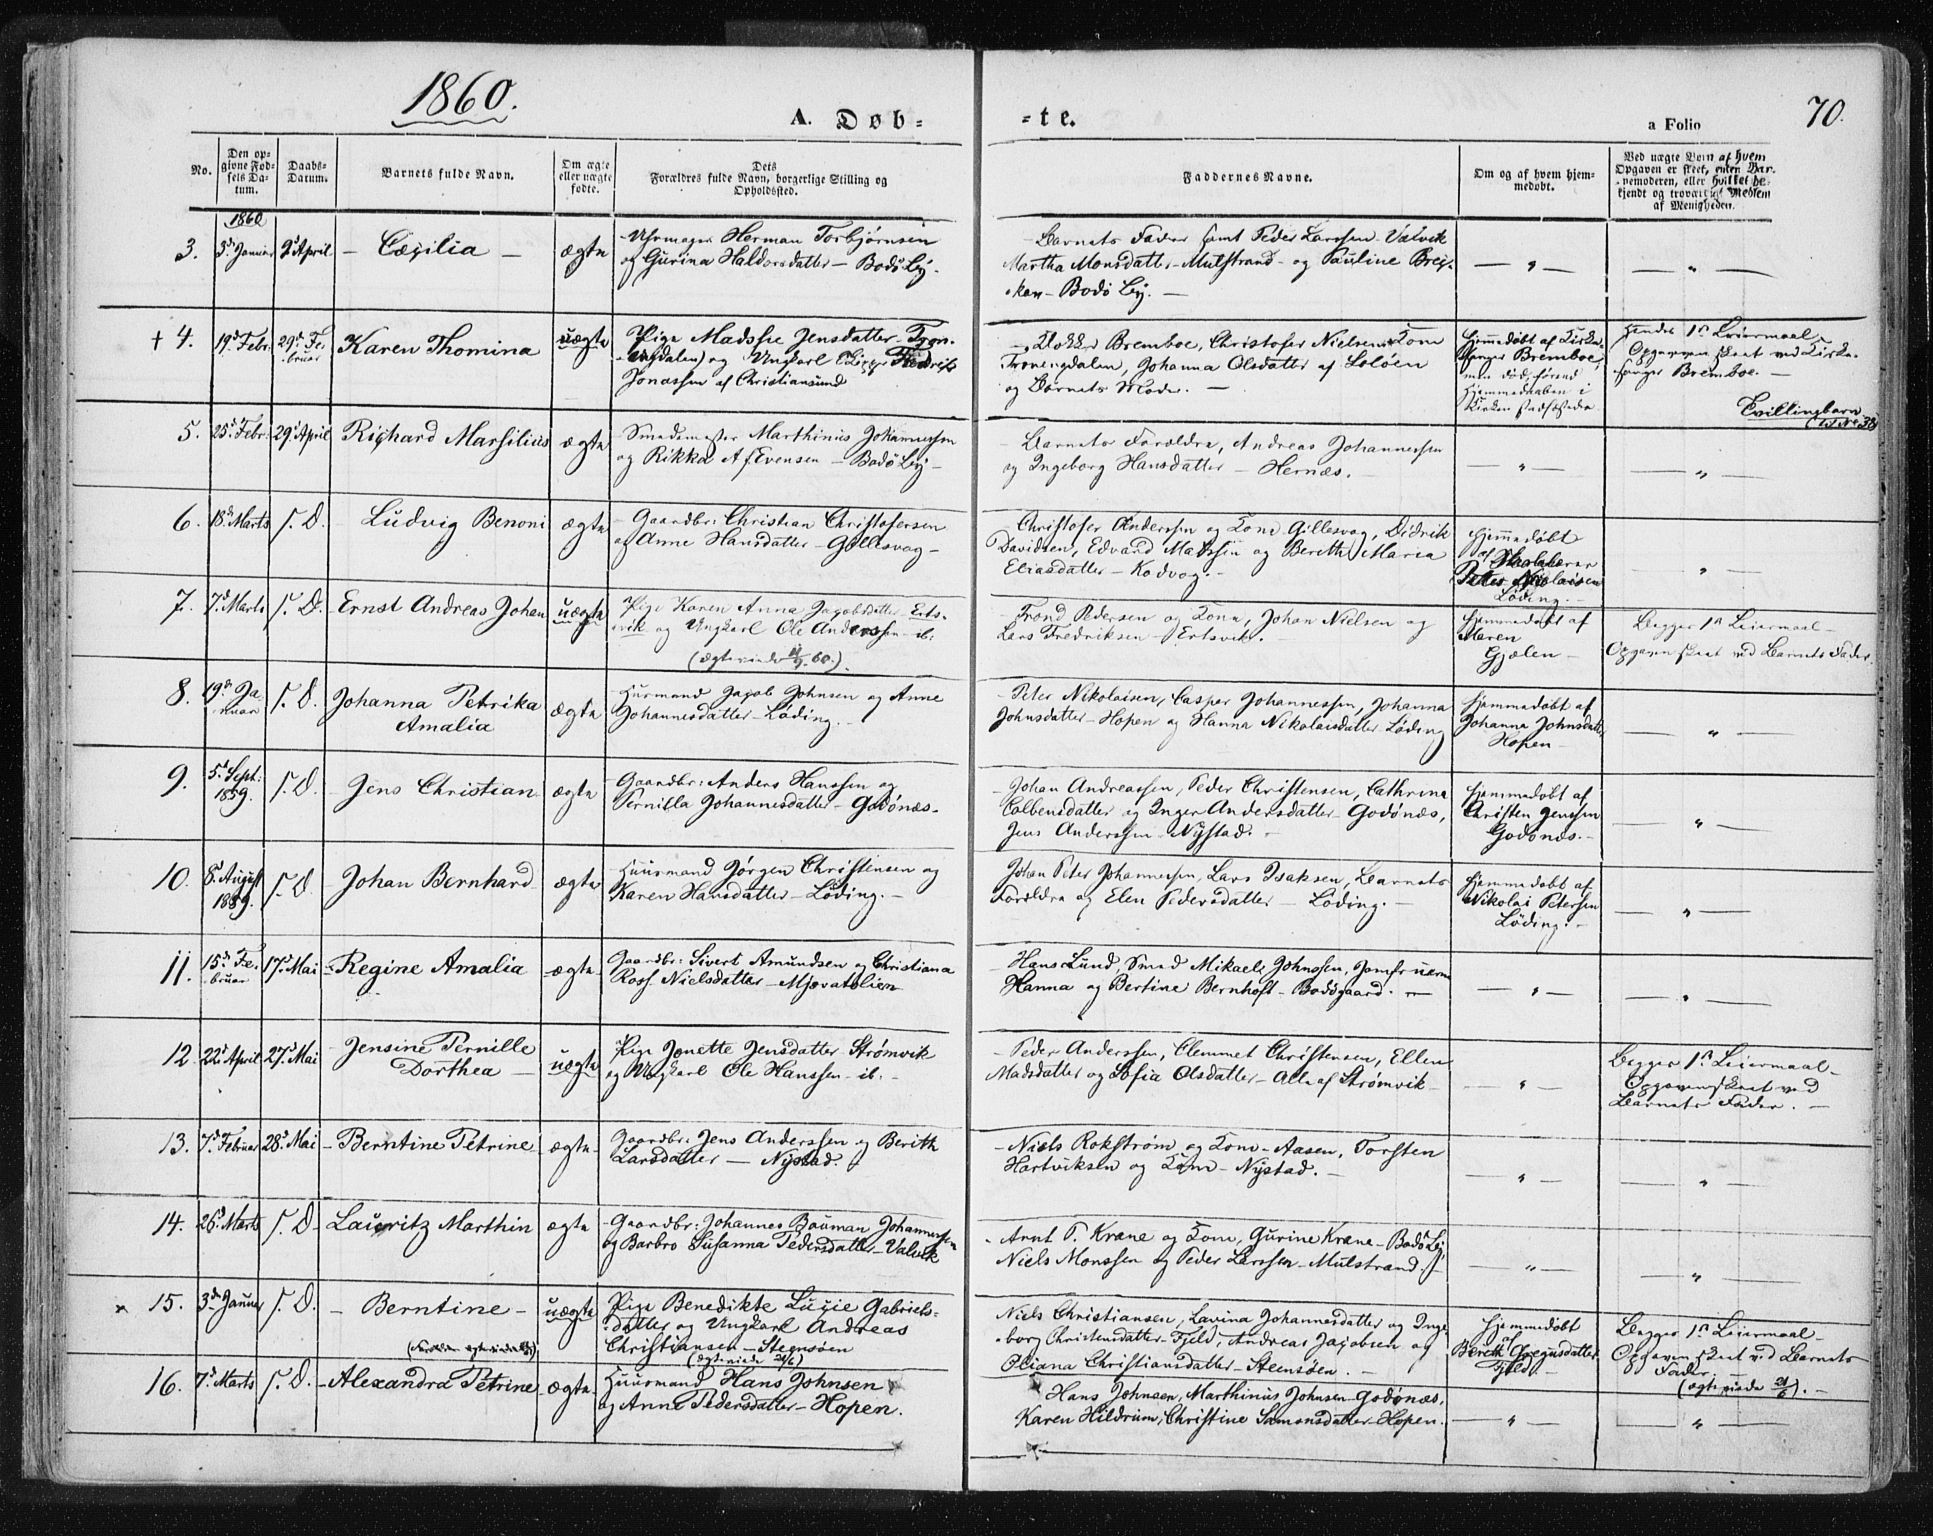 1860.
A. Døb-
-te.
a Folio
70.
No.
Den op-
givne Fød-
sels Da-
tum.
Daabs-
Datum.
Barnets fulde Navn.
Om ægte
eller uægte
fødte.
Dets
Forældres fulde Navn, borgerlige Stilling og
Opholdssted.
Faddernes Navne.
Om og af hvem hjem-
medøbt.
Ved uægte Børn af hvem
Opgaven er skeet, enten Bar-
nemoderen, eller hvilket be-
kjendt og troværdigt Medlem
af Menigheden.
1860
3.
3d Januar
9d April
– Cæcilia –
ægte
Uhrmager Herman Torbjørnsen
og Gurina Haldorsdatter – Bodø By.
– Barnets Fader samt Peder Larssen – Valvik
Martha Monsdatter – Mulstrand – og Pauline
– Bodø By. –
— " —
— " —
+ 4.
19d Febr.
29d Fe-
bruar
Karen Thomina
uægte
Pige Madsse Jensdatter –
og Ungkarl Fredrik
Jonassen af Christiansund
– Klokker Bremboe, Christofer Nielsen Kone
Johanna Olsdatter af Løløen
og Barnets Moder. –
Hjemmedøbt af Kirke-
sanger Bremboe,
men død førend
Hjemmedaaben i
Kirken stadfæstedes
hendes 1st Leiermaal –
Opgaven skeet ved Kirke-
sanger Bremboe. –
Tvillingbarn
5.
25d Febr.
29d April
Richard Marsilius
ægte
Smedemester Marthinus Johannessen
og Rikka Evensen – Bodø By –
– Barnets Forældre, Andreas Johannessen
og Ingeborg Hansdatter – Hernæs.
— " —
— " —
6.
18d Marts
s. D.
Ludvig Benoni
ægte
– Gaardbr: Christian Christofersen
og Anne Hansdatter – Gillesvag –
Christofer Anderssen og Kone Gillesvag, Didrik
Davidsen, Edvard Madssen og Berith Maria
Eliasdatter – Kodvog. –
Hjemmedøbt
af Skolelærer
Peter Nicolaisen
Løding. –
— " —
7.
7d Marts
s. D.
Ernst Andreas Johan
uægte
Pige Karen Anna Jacobsdatter Erts-
vik og Ungkarl Ole Anderssen ib:
Trond Pedersen og Kone, Johan Nielsen og
Lars Fredriksen – Ertsvik. –
Hjemmedøbt af
Maren
Gjælen –
Begges 1st Leiermaal –
Opgaven skeet ved Barnets Fader.
8.
19d Ja-
nuar
s. D.
Johanna Petrika
Amalia
ægte
– Huusmand Jacob Johnsen og Anne
Johannesdatter – Løding. –
– Peter Nikolaisen, Casper Johannessen, Johanna
Johnsdatter – Hopen og Hanna Nikolaisdatter – Løding
Hjemmedøbt af
Johanna Johnsdatter
Hopen –
— " —
9.
5d Sept:
1859.
s. D.
– Jens Christian
ægte
Gaardbr: Anders Hanssen og
Pernilla Johannesdatter – Godønæs –
– Johan Andreassen, Peder Christensen, Cathrina
Colbensdatter og Inger Andersdatter – Godønæs,
Jens Anderssen – Nystad. –
Hjemmedøbt af
Christen Jenssen
Godønæs. –
— " —
10.
8d August
1859.
s. D.
Johan Bernhard
ægte
– Huusmand Jørgen Christensen og
Karen Hansdatter – Løding. –
Johan Peter Johannessen, Lars Isaksen, Barnets
Forældre og Elen Pedersdatter – Løding. –
Hjemmedøbt af
Nikolai Petersen
Løding. –
— " —
11.
15d Fe-
bruar
17d Mai
– Regine Amalia
ægte
Gaardbr: Sivert Amundsen og Christiana
Ross Nielsdatter – Mjøvatslien
– Hans Lund, Smed Mikael Johnssen, Jomfruerne
Hanna og Bertine Bernhoft – Bodøgaard. –
— " —
— " —
12.
22d April
27d Mai
– Jensine Pernille
Dorthea –
uægte
– Pige Jonette Jensdatter Strømvik
og Ungkarl Ole Hanssen – ib. –
– Peder Anderssen, Clemmet Christensen, Ellen
Madsdatter og Sofia Olsdatter – Alle af Strømvik –
— " —
Begges 1st Leiermaal –
Opgaven skeet ved
Barnets Fader. –
13.
7d Februar
28d Mai
– Berntine Petrine
ægte
Gaardbr: Jens Anderssen og Berith
Larsdatter – Nystad.
– Niels Rokstrøm og Kone – Aasen, Torsten
Hartviksen og Kone – Nystad. –
— " —
— " —
14.
26d Marts
s. D.
Lauritz Marthin
ægte
– Gaardbr: Johannes Bauman Johannessen
og Barbro Susanna Pedersdatter – Valvik
– Arnt P. Krane og Kone, Gurine Krane – Bodø By
Niels Monssen og Peder Larssen – Mulstrand. –
— " —
— " —
15.
3d Januar
s. D.
– Berntine –
uægte
Pige Benedikte Lucie Gabriels-
datter og Ungkarl Andreas
Christiansen – Steensøen
Niels Christiansen, Lavina Johannesdatter og Inge-
borg Christensdatter – Fjeld, Andreas Jacobsen og
Oliana Christiansdatter – Steensøen. –
Hjemmedøbt
af
Fjeld. –
Begges 1st Leiermaal –
Opgaven skeet ved Barnets
Fader. –
16.
7d Marts
s. D.
– Alexandra Petrine
ægte
Huusmand Hans Johnsen
og Anne Pedersdatter – Hopen.
Hans Johnsen, Marthinus Johnsen – Godønæs,
Karen Hildrum, Christine Samonsdatter – Hopen.
— " —
— " —